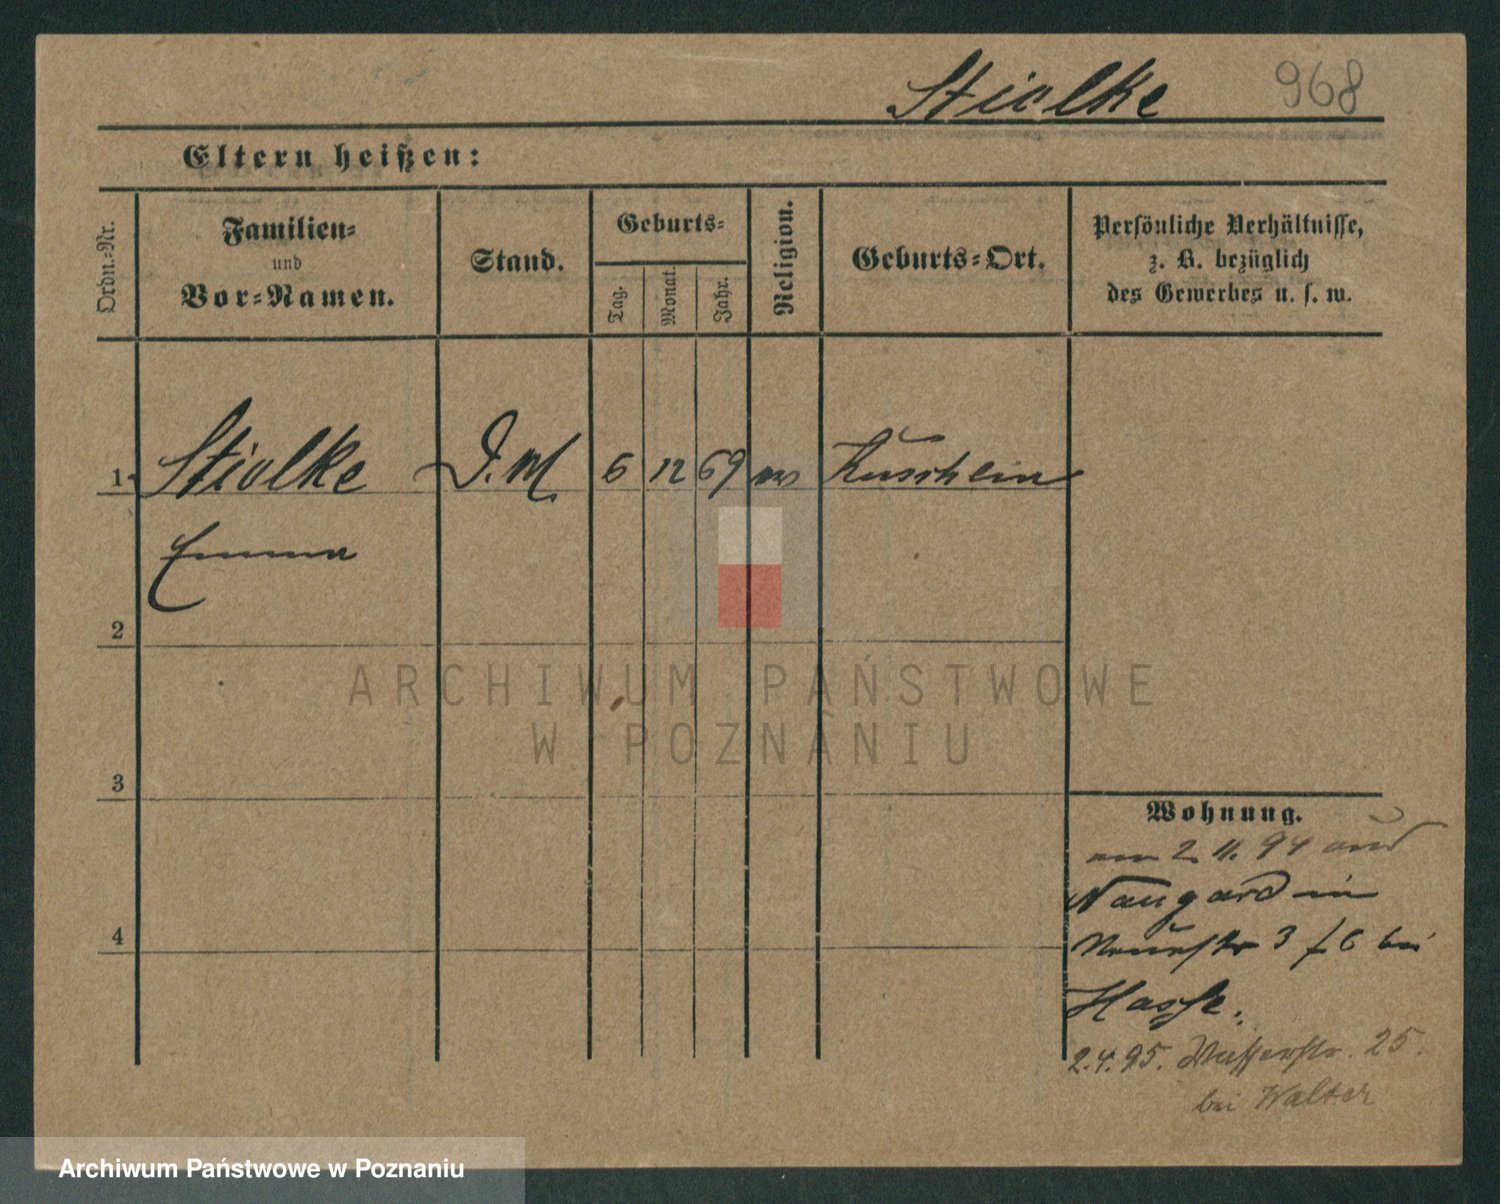 Stialke 968
Eltern heißen:
Ordn.-Nr.
Familien-
und
Vor-Namen.
Stand.
Geburts-
Tag.
Monat.
Jahr.
Religion.
Geburts-Ort.
Persönliche Verhältnisse,
z. B. bezüglich
des Gewerbes u. s. w.
1 Stialke D. M 6 12 69 ev
Emma
2
3
4
Wohnung.
am 2 11. 94 aus
Naugard in
3 bei
Hasse.
2.4.95. Wasserstr. 25.
bei Walter
ARCHIWUM PAŃSTWOWE
W POZNANIU
Archiwum Państwowe w Poznaniu